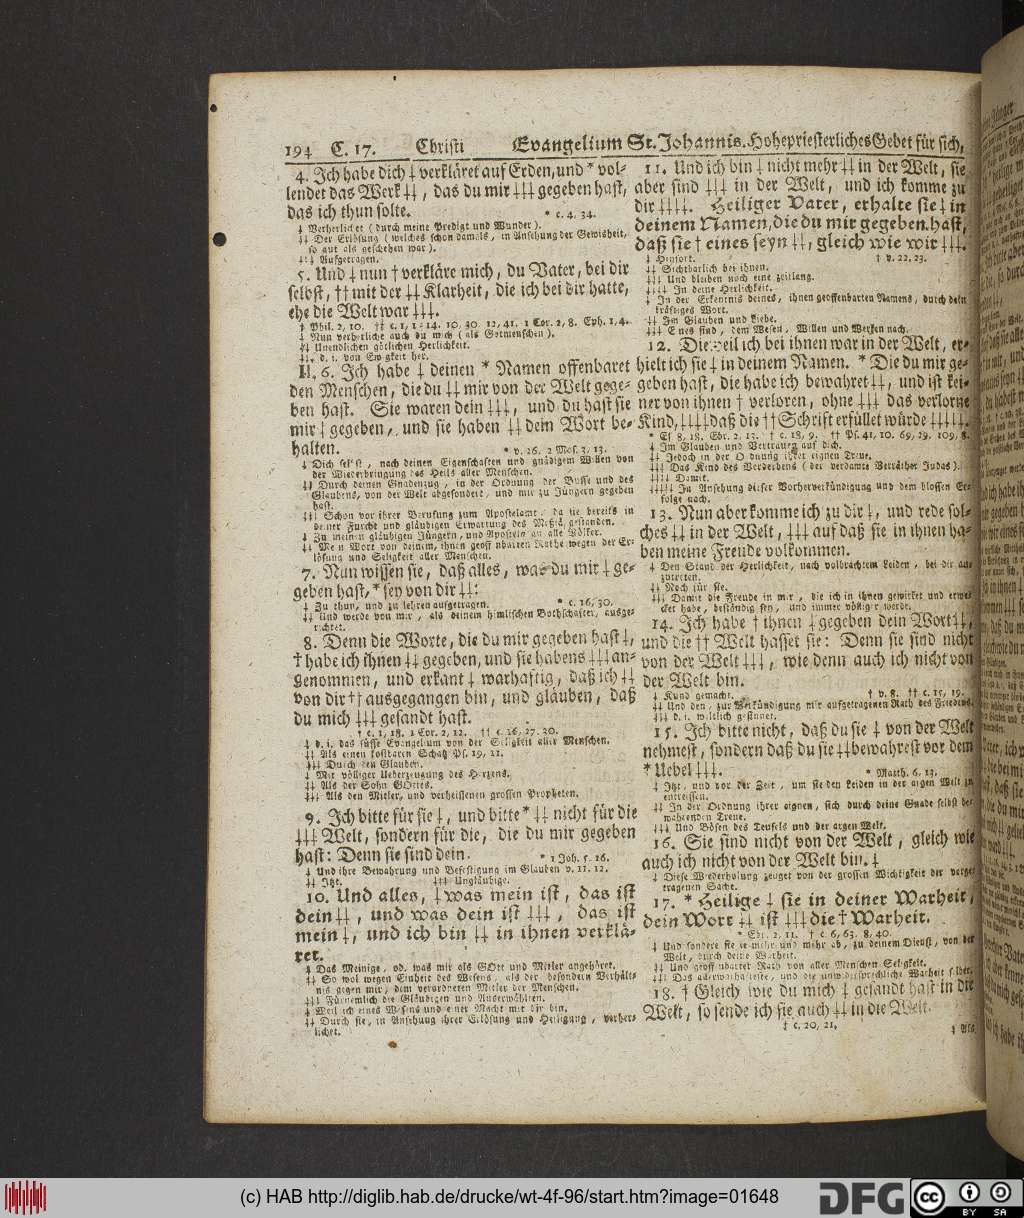 194 C. 17. Christi Evangelium St. Johannis. Hohepriesterliches Gebet für sich,
4. Ich habe dich ‡ verkläret auf Erden, und * vol-
lendet das Werk ‡‡, das du mir ‡‡‡ gegeben hast,
das ich thun solte. * c. 4. 34.
‡ Verherlichet (durch meine Predigt und Wunder).
‡‡ Der Erlösung (welches schon damals, in Ansehung der Gewisheit,
so gut als geschehen war).
‡‡‡ Aufgetragen.
5. Und ‡ nun † verkläre mich, du Vater, bei dir
selbst, †† mit der ‡‡ Klarheit, die ich bei dir hatte,
ehe die Welt war ‡‡‡.
† Phil. 2, 10. †† c. 1, 1-14. 10, 30. 12, 41. 1 Cor. 2, 8. Eph. 1, 4.
‡ Nun verherliche auch du mich (als Gotmenschen).
‡‡ Unendlichen götlichen Herlichkeit.
‡‡‡ d. i. von Ewigkeit her.
II. 6. Ich habe ‡ deinen * Namen offenbaret
den Menschen, die du ‡‡ mir von der Welt gege-
ben hast. Sie waren dein ‡‡‡, und du hast sie
mir ‡ gegeben, und sie haben ‡‡ dein Wort be-
halten. * v. 26. 2 Mos. 3, 13.
‡ Dich selbst, nach deinen Eigenschaften und gnädigem Willen von
der Wiederbringung des Heils aller Menschen.
‡‡ Durch deinen Gnadenzug, in der Ordnung der Busse und des
Glaubens, von der Welt abgesondert, und mir zu Jüngern gegeben
hast.
‡‡‡ Schon vor ihrer Berufung zum Apostelamt, da sie bereits in
deiner Furcht und gläubigen Erwartung des Meßiä gestanden.
‡ Zu meinen gläubigen Jüngern, und Aposteln an alle Völker.
‡‡ Mein Wort von deinem, ihnen geoffenbarten Rathe wegen der Er-
lösung und Seligkeit aller Menschen.
7. Nun wissen sie, daß alles, was du mir ‡ ge-
geben hast, * sey von dir ‡‡: 
‡ Zu thun, und zu lehren aufgetragen. * c. 16, 30.
‡‡ Und werde von mir, als deinem himlischen Bothschafter, ausge-
richtet.
8. Denn die Worte, die du mir gegeben hast ‡,
† habe ich ihnen ‡‡ gegeben, und sie habens ‡‡‡ an-
genommen, und erkant ‡ warhaftig, daß ich ‡‡
von dir †† ausgegangen bin, und gläuben, daß
du mich ‡‡‡ gesandt hast.
† c. 1, 18. 1 Cor. 2, 12. †† c. 16, 27. 30.
‡ d. i. das süsse Evangelium von der Seligkeit aller Menschen.
‡‡ Als einen kostbaren Schatz Ps. 19, 11.
‡‡‡ Durch den Glauben.
‡ Mit völliger Ueberzeugung des Herzens.
‡‡ Als der Sohn GOttes.
‡‡‡ Als den Mitler, und verheissenen grossen Propheten.
9. Ich bitte für sie ‡, und bitte * ‡‡ nicht für die
‡‡‡ Welt, sondern für die, die du mir gegeben
hast: Denn sie sind dein. * 1 Joh. 5, 16.
‡ Und ihre Bewahrung und Befestigung im Glauben v. 11. 12.
‡‡ Itzt. ‡‡‡ Ungläubige.
10. Und alles, ‡ was mein ist, das ist
dein ‡‡, und was dein ist ‡‡‡, das ist
mein ‡, und ich bin ‡‡ in ihnen verklä-
ret.
‡ Das Meinige, od. was mir als GOtt und Mitler angehöret.
‡‡ So wol wegen Einheit des Wesens, als der besondern Verhält-
nis gegen mir, dem verordneten Mitler der Menschen.
‡‡‡ Fürnemlich die Gläubigen und Auserwählten.
‡ Weil ich eines Wesens und einer Macht mit dir bin.
‡‡ Durch sie, in Ansehung ihrer Erlösung und Heiligung, verher-
lichet.
11. Und ich bin ‡ nicht mehr ‡‡ in der Welt, sie
aber sind ‡‡‡ in der Welt, und ich komme zu
dir ‡‡‡‡. Heiliger Vater, erhalte sie ‡ in
deinem Namen, die du mir gegeben hast,
daß sie † eines seyn ‡‡, gleich wie wir ‡‡‡.
‡ Hinfort. † v. 22. 23.
‡‡ Sichtbarlich bei ihnen.
‡‡‡ Und bleiben noch eine zeitlang.
‡‡‡‡ In deine Herlichkeit.
‡ In der Erkentnis deines, ihnen geoffenbarten Namens, durch dein
kräftiges Wort.
‡‡ Im Glauben und Liebe.
‡‡‡ Eines sind, dem Wesen, Willen und Werken nach.
12. Dieweil ich bei ihnen war in der Welt, er-
hielt ich sie ‡ in deinem Namen. * Die du mir ge-
geben hast, die habe ich bewahret ‡‡, und ist kei-
ner von ihnen † verloren, ohne ‡‡‡ das verlorne
Kind, ‡‡‡‡ daß die †† Schrift erfüllet würde ‡‡‡‡‡.
* Es. 8, 18. Ebr. 2, 13. † c. 18, 9. †† Ps. 41, 10. 69, 29. 109, 8.
‡ Im Glauben und Vertrauen auf dich.
‡‡ Jedoch in der Ordnung ihrer eignen Treue.
‡‡‡ Das Kind des Verderbens (der verdamte Verräther Judas).
‡‡‡‡ Damit.
‡‡‡‡‡ In Ansehung dieser Vorherverkündigung und dem blossen Er-
folge nach.
13. Nun aber komme ich zu dir ‡, und rede sol-
ches ‡‡ in der Welt, ‡‡‡ auf daß sie in ihnen ha-
ben meine Freude volkommen.
‡ Den Stand der Herlichkeit, nach volbrachtem Leiden, bei dir an-
zutreten.
‡‡ Noch für sie.
‡‡‡ Damit die Freude in mir, die ich in ihnen gewirket und erwe-
cket habe, beständig sey, und immer völliger werde.
14. Ich habe † ihnen ‡ gegeben dein Wort ‡‡,
und die †† Welt hasset sie: Denn sie sind nicht
von der Welt ‡‡‡, wie denn auch ich nicht von
der Welt bin.
‡ Kund gemacht. † v. 8. †† c. 15, 19.
‡‡ Und den, zur Verkündigung mir aufgetragenen Rath des Friedens.
‡‡‡ d. i. weltlich gesinnet.
15. Ich bitte nicht, daß du sie ‡ von der Welt
nehmest, sondern daß du sie ‡‡ bewahrest vor dem
* Uebel ‡‡‡. * Matth. 6, 13.
‡ Itzt, und vor der Zeit, um sie den Leiden in der argen Welt zu
entreissen.
‡‡ In der Ordnung ihrer eignen, sich durch deine Gnade selbst be-
wahrenden Treue.
‡‡‡ Und Bösen des Teufels und der argen Welt.
16. Sie sind nicht von der Welt, gleich wie
auch ich nicht von der Welt bin. ‡
‡ Diese Wiederholung zeuget von der grossen Wichtigkeit der vorge-
tragenen Sache.
17. * Heilige ‡ sie in deiner Warheit,
dein Wort ‡‡ ist ‡‡‡ die † Warheit.
* Ebr. 2, 11. † c. 6, 63. 8, 40.
‡ Und sondere sie je mehr und mehr ab, zu deinem Dienst, von der
Welt, durch deine Warheit.
‡‡ Und geoffenbarter Rath von aller Menschen Seligkeit.
‡‡‡ Das allerwahrhafteste, und die unwidersprechliche Warheit selber.
18. † Gleich wie du mich ‡ gesandt hast in die
Welt, so sende ich sie auch ‡‡ in die Welt.
† c. 20, 21.
‡ Als
(c) HAB http://diglib.hab.de/drucke/wt-4f-96/start.htm?image=01648
DFG
cc BY SA